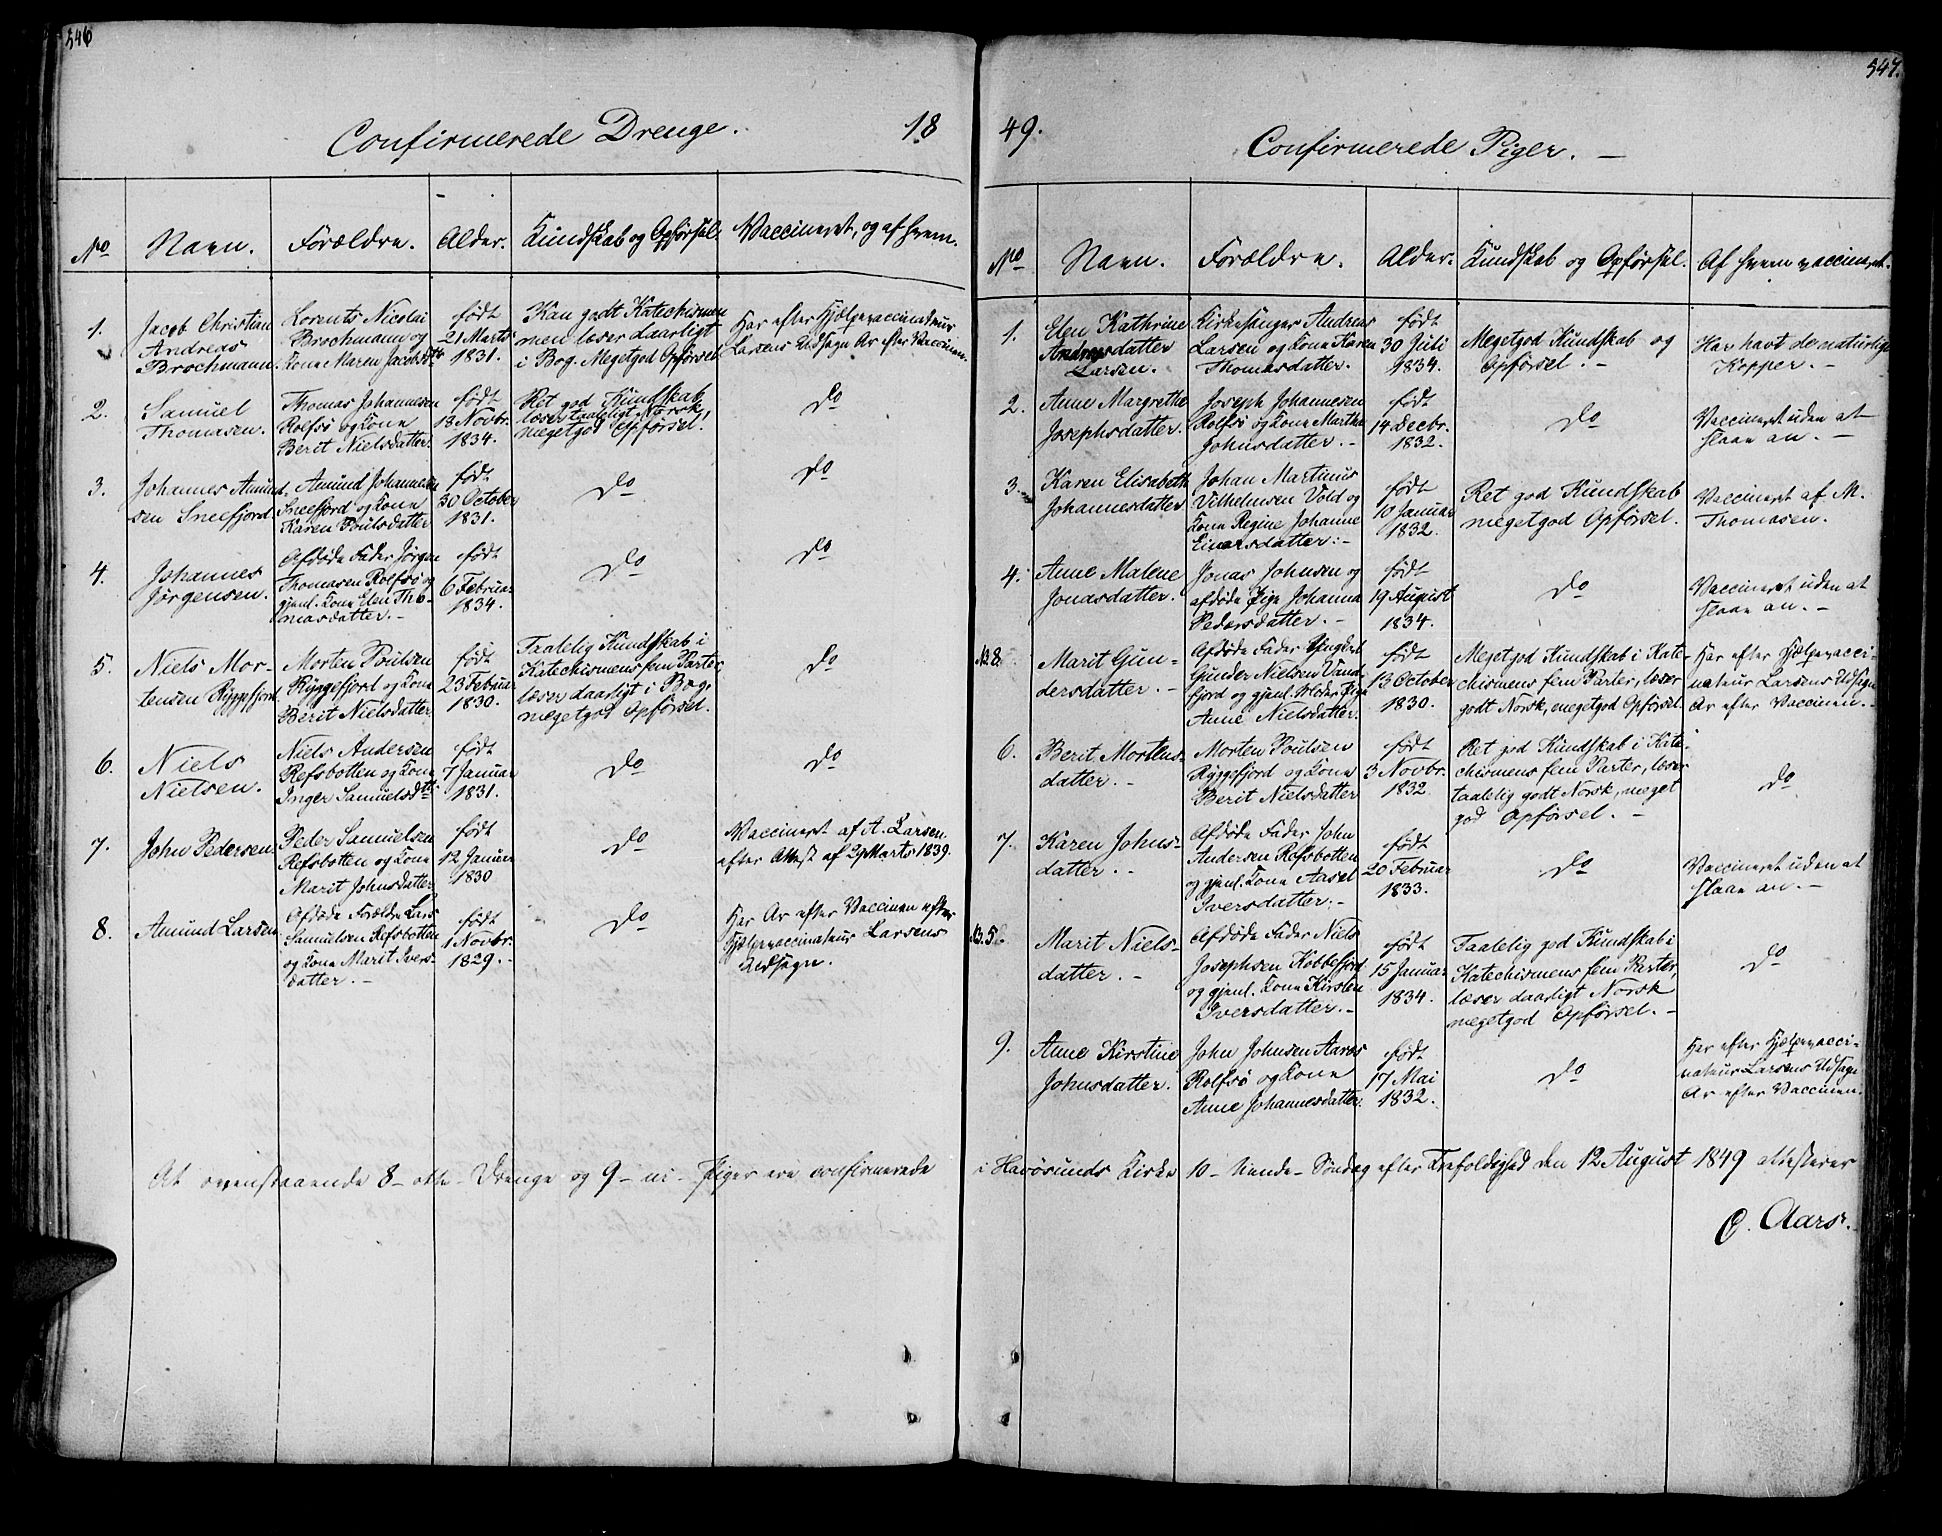 546
Confirmerede Drenge. 18
No Navn. Forældre. Alder. Kundskab og Opførsel. Vaccineret, og af hvem.
1. Jacob Christian
Andreas
Brochmann.
Lorents Nicolai
Brochmann og
Kone Maren Jacobsdtr
født
21 Marts
1831.
Kan godt Katechismen
men læser daarligt
i Bog. Megetgod Opførsel
Har efter Hjælpevaccinateur
Larsens Udsagn Ar efter Vaccinen.
2. Samuel
Thomasen.
Thomas Johannesen
Rolfsö og Kone
Berit Nielsdatter.
født
18 Novbr.
1834.
Ret god Kundskab
læser taaleligt Norsk,
megetgod Opførsel.
Do
3. Johannes Amund-
sen Sneefjord.
Amund Johannesen
Sneefjord og Kone
Karen Poulsdatter
født
30 October
1831.
Do
Do
4. Johannes
Jörgensen.
Afdöde Fader Jörgen
Thomasen Rolfsö og
gjenl. Kone Elen Tho-
masdatter.-
født
6 Februar
1834.
Do
Do
5. Niels Mor-
tensen Ryggefjord
Morten Poulsen
Ryggefjord og Kone
Berit Nielsdatter.
født
23 Februar
1830.
Taalelig Kundskab i
Katechismens fem Parter
læser daarligt i Bog,
megetgod Opførsel.
Do
6. Niels
Nielsen.
Niels Andersen
Refsbotten og Kone
Inger Samuelsdtr
født
7 Januar
1831.
Do
Do
7. John Pedersen.
Peder Samuelsen
Refsbotten og Kone
Marit Johnsdatter
født
12 Januar
1830
Do
Vaccineret af A. Larsen
efter Attest af 29 Marts 1839.
8. Amund Larsen
Afdöde Forældre Lars
Samuelsen Refsbotten
og Kone Marit Ivers-
datter.-
født
1 Novbr.
1829.-
Do
Har Ar efter Vaccinen efter
Hjælpevaccinateur Larsens
Udsagn.
At ovenstaaende 8- otte- Drenge og 9- ni- Piger ere confirmerede
547.
49. Confirmerede Piger.-
No Navn. Forældre. Alder. Kundskab og Opførsel. Af hvem vaccineret.
1. Elen Kathrine
Andreasdatter
Larsen.
Kirkesanger Andreas
Larsen og Kone Karen
Thomasdatter.
født
30 Juli
1834.
Megetgod Kundskab og
Opførsel.-
Har havt de naturlige
Kopper.-
2. Anne Margrethe
Josephsdatter.
Joseph Johannesen
Rolfsö og Kone Martha
Johnsdatter.-
født
14 Decbr.
1832.
Do
Vaccineret uden at
slaae an.-
3. Karen Elisabeth
Johannesdatter
Johan Martinus
Vilhelmsen Vold og
Kone Regine Johanne
Einarsdatter:-
født
10 Januar
1832.
Ret god Kundskab
megetgod Opførsel.
Vaccineret af M.
Thomasen.
4. Anne Malene
Jonasdatter.
Jonas Johnsen og
afdöde Pige Johanna
Pedersdatter.-
født
19 August
1834.
Do
Vaccineret uden at
slaae an.-
No 8. Marit Gun-
dersdatter.-
Afdöde Fader Ungkarl
Gunder Nielsen Vand-
fjord og gjenl. Moder Pige
Anne Nielsdatter.
født
13 October
1830.
Megetgod Kundskab i Kate-
chismens fem Parter, læser
godt Norsk, megetgod Opførsel
Har efter Hjælpevacci-
nateur Larsens Udsagn
Ar efter Vaccinen.
6. Berit Mortens-
datter.-
Morten Poulsen
Ryggefjord og Kone
Berit Nielsdatter
født
3 Novbr.
1832
Ret god Kundskab i Kate-
chismens fem Parter, læser
taalelig godt Norsk, meget
god Opførsel.-
Do
7. Karen Johns-
datter.-
Afdöde Fader John
Andersen Refsbotten
og gjenl. Kone Aasel
Iversdatter.-
født
20 Februar
1833.
Do
Vaccineret uden at
slaae an.-
No 5. Marit Niels-
datter.-
Afdöde Fader Niels
Josephsen Kobbefjord
og gjenl. Kone Kirsten
Iversdatter.-
født
15 Januar
1834.
Taalelig god Kundskab i
Katechismens fem Parter,
læser daarligt Norsk
megetgod Opførsel.-
Do
9. Anne Kirstine
Johnsdatter.
John Johnsen Aarøs
Rolfsö og Kone
Anne Johannesdatter.
født
17 Mai
1832.
Do
Har efter Hjælpevacci-
nateur Larsens Udsagn
Ar efter Vaccinen.
i Havösunds Kirke 10- tiende- Søndag efter Trefoldighed den 12 August 1849 attesterer
O. Aars.